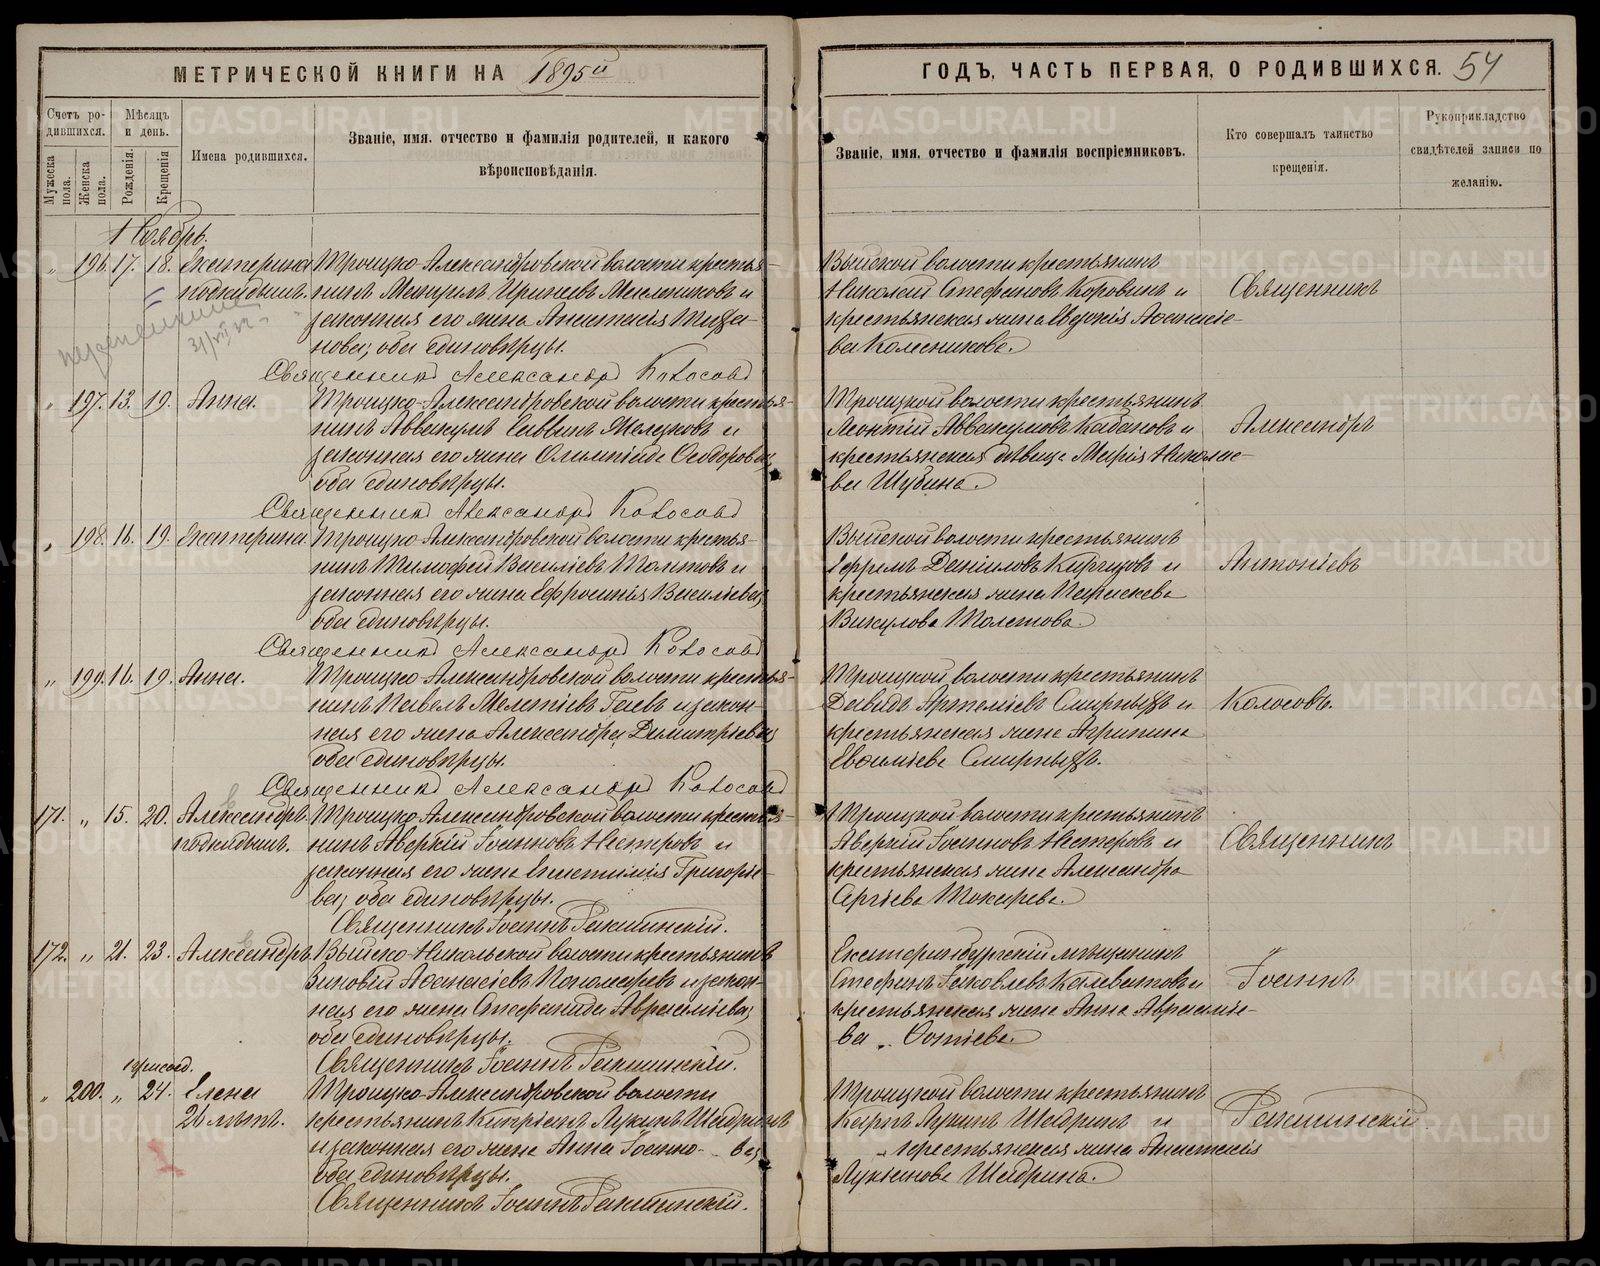 МЕТРИЧЕСКОЙ КНИГИ НА 1895й
ГОДЪ, ЧАСТЬ ПЕРВАЯ, О РОДИВШИХСЯ. 54
Счетъ родившихся.
Мужеска пола.
Женска пола.
Мѣсяцъ и день.
Рожденія.
Крещенія
Имена родившихся.
Званіе, имя, отчество и фамилія родителей, и какого
вѣроисповѣданія.
Званіе, имя, отчество и фамилія воспріемниковъ.
Кто совершалъ таинство
крещенія.
Рукоприкладство
свидѣтелей записи по
желанію.
Ноябрь.
„ 196. 17. 18. Екатерина Троицко-Александровской волости крестья-
подкидышъ. нинъ и
законная его жена Анастасія
нова, оба единовѣрцы.
Священникъ Александръ Колосовъ
Выйской волости крестьянинъ
Николай Стефановъ Коровинъ и
крестьянская жена Евдокія Аѳанасіе-
ва Колесникова.
Священникъ
„ 197. 13. 19. Анна. Троицко-Александровской волости крестья-
нинъ Аввакумъ Саввинъ и
законная его жена Олимпіада Ѳеодорова,
оба единовѣрцы.
Священникъ Александръ Колосовъ
Троицкой волости крестьянинъ
Леонтій Аввакумовъ Кабановъ и
крестьянская дѣвица Марія Николае-
ва Шубина.
Александръ
„ 198. 16. 19. Екатерина Троицко-Александровской волости крестья-
нинъ Тимофей Василіевъ и
законная его жена Евфросинія Василіева,
оба единовѣрцы.
Священникъ Александръ Колосовъ
Выйской волости крестьянинъ
Ефремъ Даніиловъ и
крестьянская жена Параскева
Викулова
Антоніевъ
„ 199. 16. 19. Анна. Троицко-Александровской волости крестья-
нинъ Павелъ Мелетіевъ Гаевъ и закон-
ная его жена Александра Димитріева,
оба единовѣрцы.
Священникъ Александръ Колосовъ
Троицкой волости крестьянинъ
Давидъ Артеміевъ Смирныхъ и
крестьянская жена Агрипина
Евѳиміева Смирныхъ.
Колосовъ.
171. „ 15. 20. Александръ Троицко-Александровской волости крестья-
подкидышъ. нинъ Аверкій Іоанновъ Нестеровъ и
законная его жена Григорье-
ва, оба единовѣрцы.
Священникъ Іоаннъ Ракитинскій.
Троицкой волости крестьянинъ
Аверкій Іоанновъ Нестеровъ и
крестьянская жена Александра
Сергіева Токарева.
Священникъ
172. „ 21. 23. Александръ Выйско-Никольской волости крестьянинъ
Зиновій Аѳанасіевъ Пономаревъ и закон-
ная его жена Стефанида Авраамиева,
оба единовѣрцы.
Священникъ Іоаннъ Ракитинскій.
Екатеринбургскій мѣщанинъ
Стефанъ Іаковлевъ и
крестьянская жена Анна Авраамие-
ва
Іоаннъ
присоед.
„ 200. „ 24. Елена Троицко-Александровской волости
26 лѣтъ. крестьянинъ Кипріанъ Лукинъ Шадринъ
и законная его жена Анна Іоанно- ва,
оба единовѣрцы.
Священникъ Іоаннъ Ракитинскій.
Троицкой волости крестьянинъ
Карпъ Лукинъ Шадринъ и
крестьянская жена Анастасія
Лукіанова Шадрина.
Ракитинскій.
METRIKI.GASO-URAL.RU